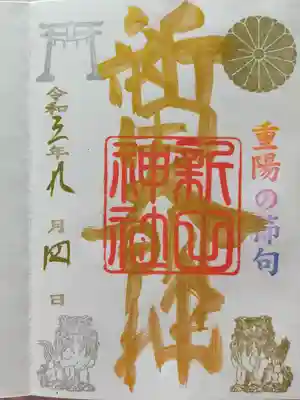 重陽の節句
新田神社
新田
神社
令和三年九月四日